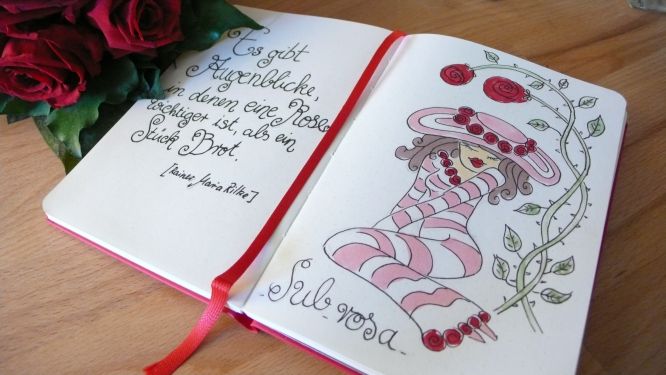 Es gibt
Augenblicke,
in denen eine Rose
wichtiger ist, als ein
Stück Brot.
[Rainer Maria Rilke]
Sub rosa